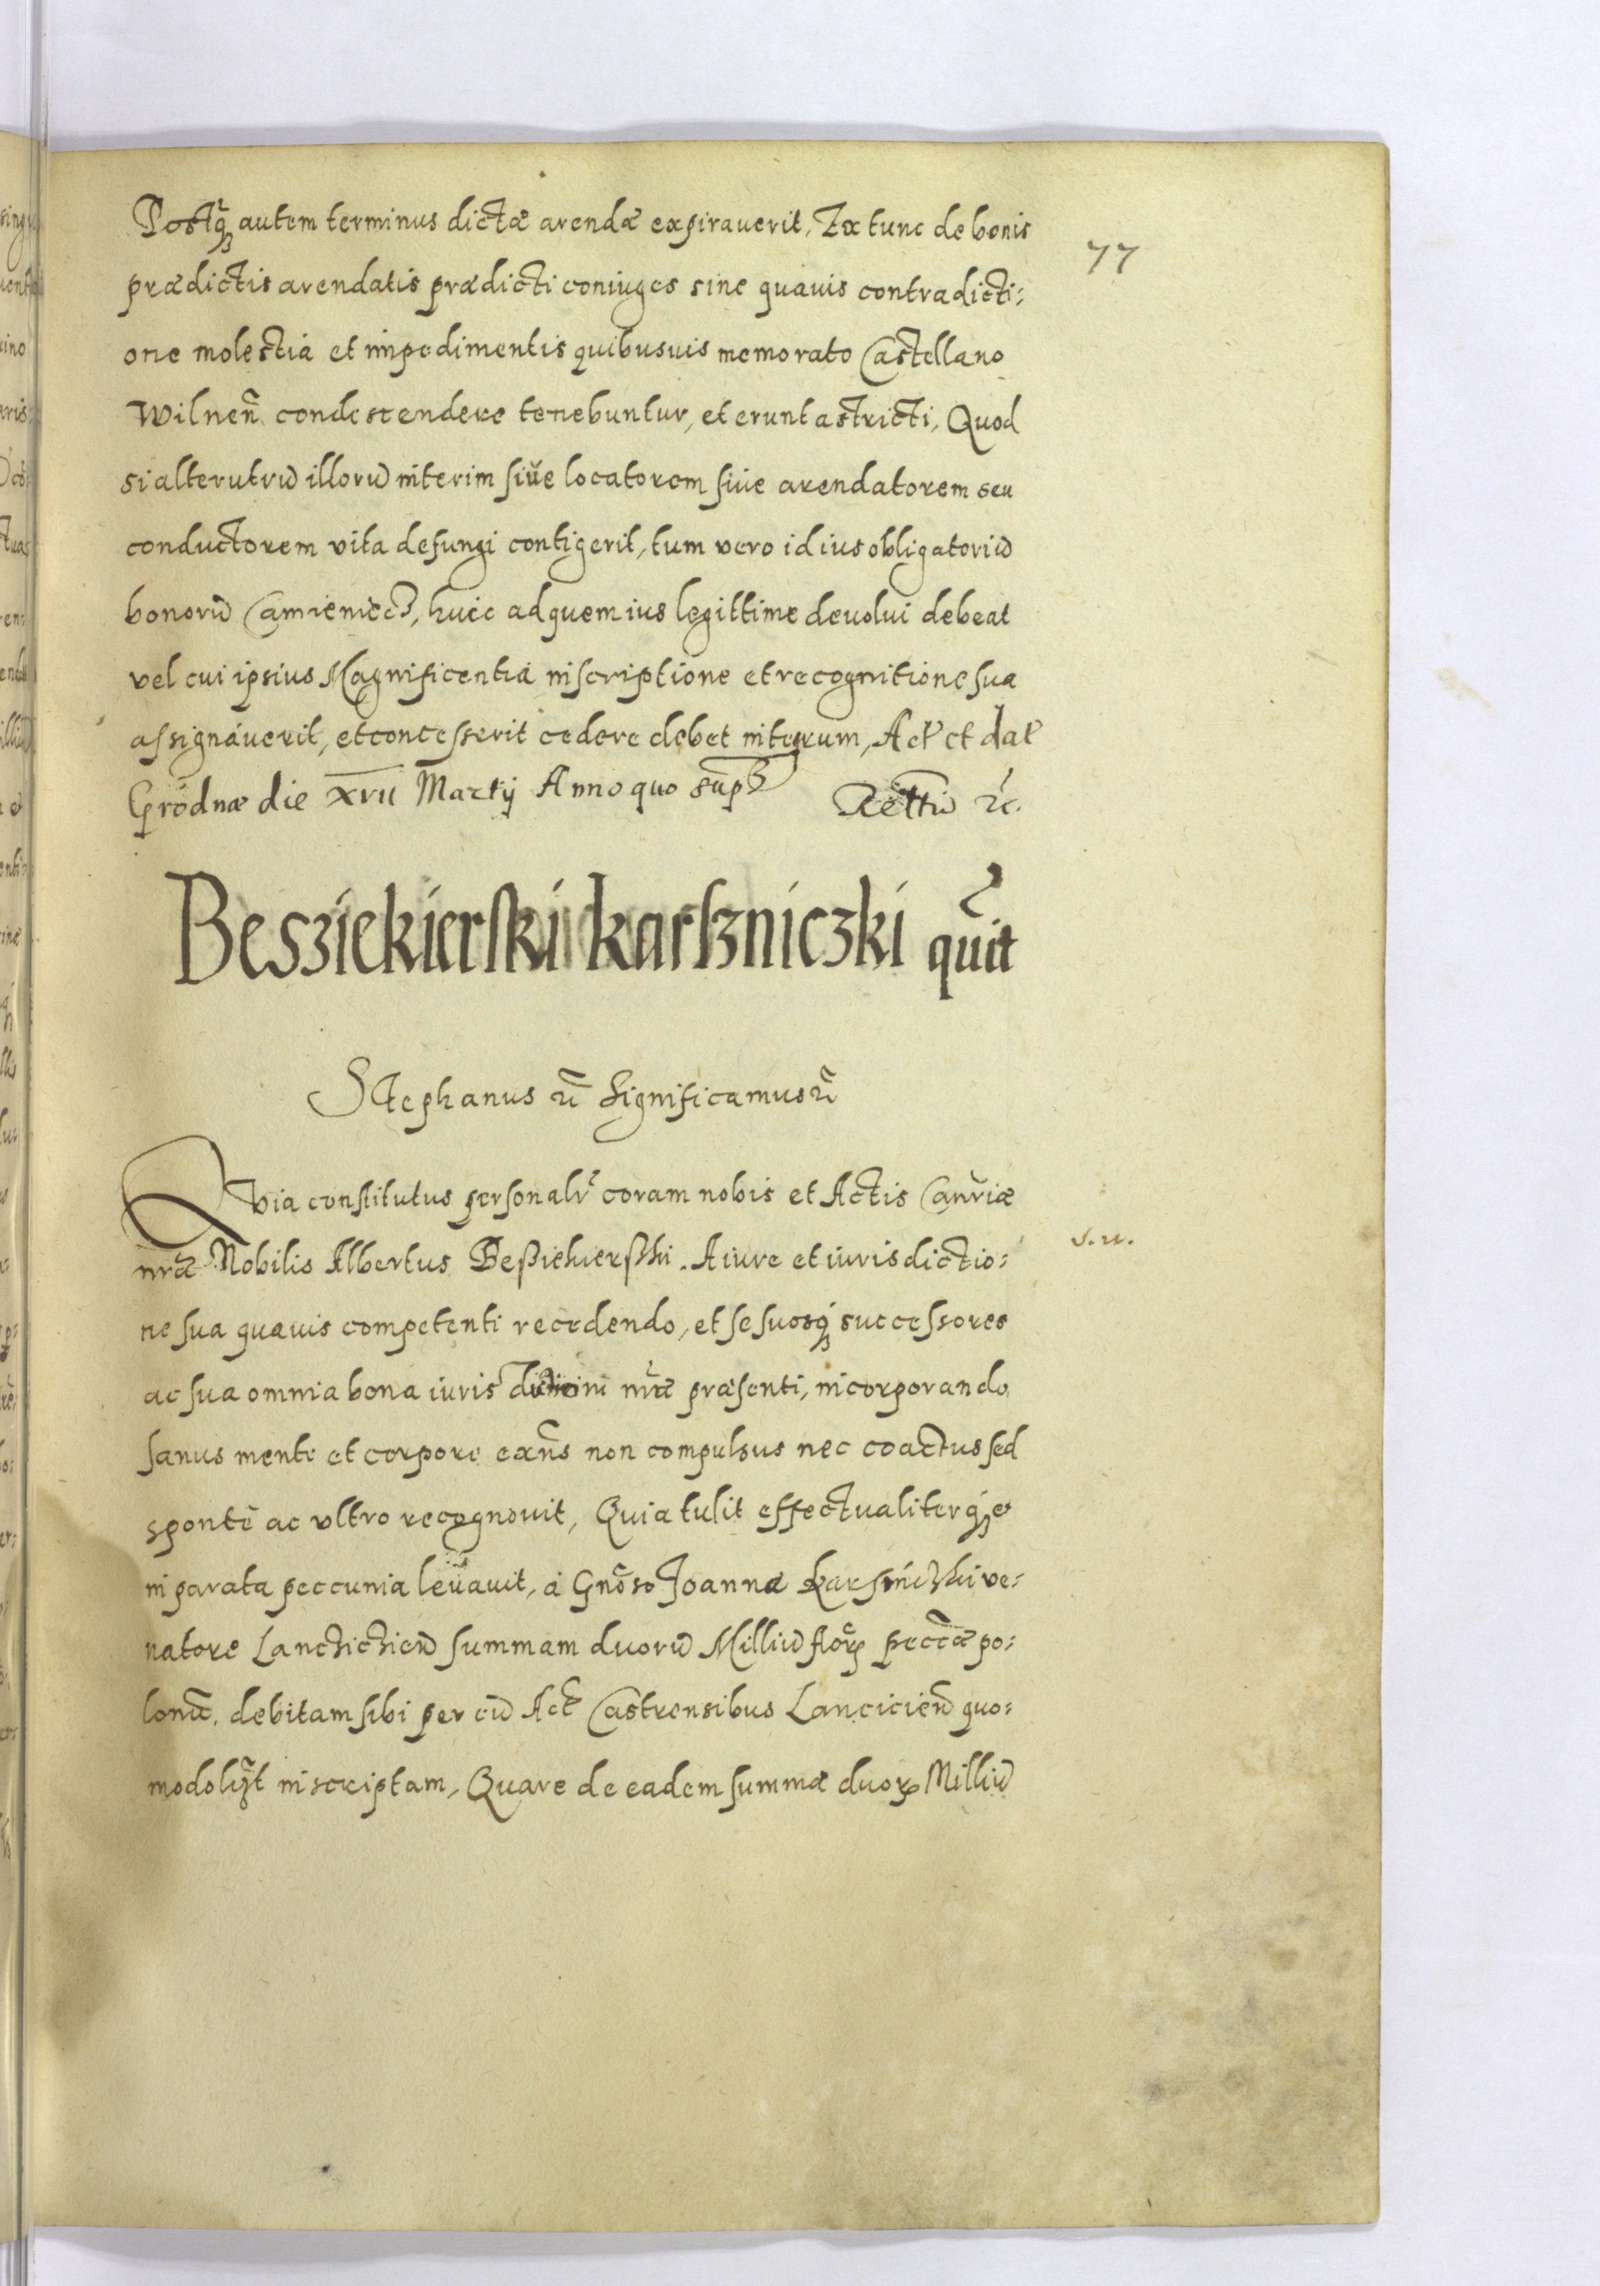 77
Postq̃ autem terminus dictæ arendæ expirauerit, Ex tunc de bonis
prædictis arendatis prædicti coniuges sine quauis contradicti:
one molestia et impedimentis quibusuis memorato Castellano
Wilnen̄ condescendere tenebuntur, et erunt astricti, Quod
si alterutrū illorū interim siue locatorem siue arendatorem seu
conductorem vita defungi contigerit, tum vero id ius obligatoriū
bonorū Camieniecz, huic ad quem ius legittime deuolui debeat
vel cui ipsius Magnificentia inscriptione et recognitione sua
assignáuerit, et concesserit cedere debet integrum, Act et dat
Grodnæ die XVII Martij Anno quo sup̄
Rel̄tiū rc̄.
Besziekierski karszniczki quit̄
Stephanus rc̄ Significamus rc̄
Quia constitutus personalr̄ coram nobis et Actis Canr̄iæ
nr̄æ Nobilis Albertus Beßiekierßki. A iure et iurisdictio:
ne sua quauis competenti recedendo, et se suosq́ successores
ac sua omnia bona iuris nr̄æ præsenti, incorporando
sanus mente et corpore exn̄s non compulsus nec coactus sed
sponte ac vltro recognouit, Quia tulit effectualiterq́ et
in parata peccunia leuauit, á Gn̄oso Joanne Karsniczki ve:
natore Lancziczien̄ summam duorū Milliū flor̄ pecc̄æ po:
lonic̄. debitam sibi per eū Act Castrensibus Lancicien̄ quo:
modolt̄ inscriptam, Quare de eadem summa duor̄ Milliū